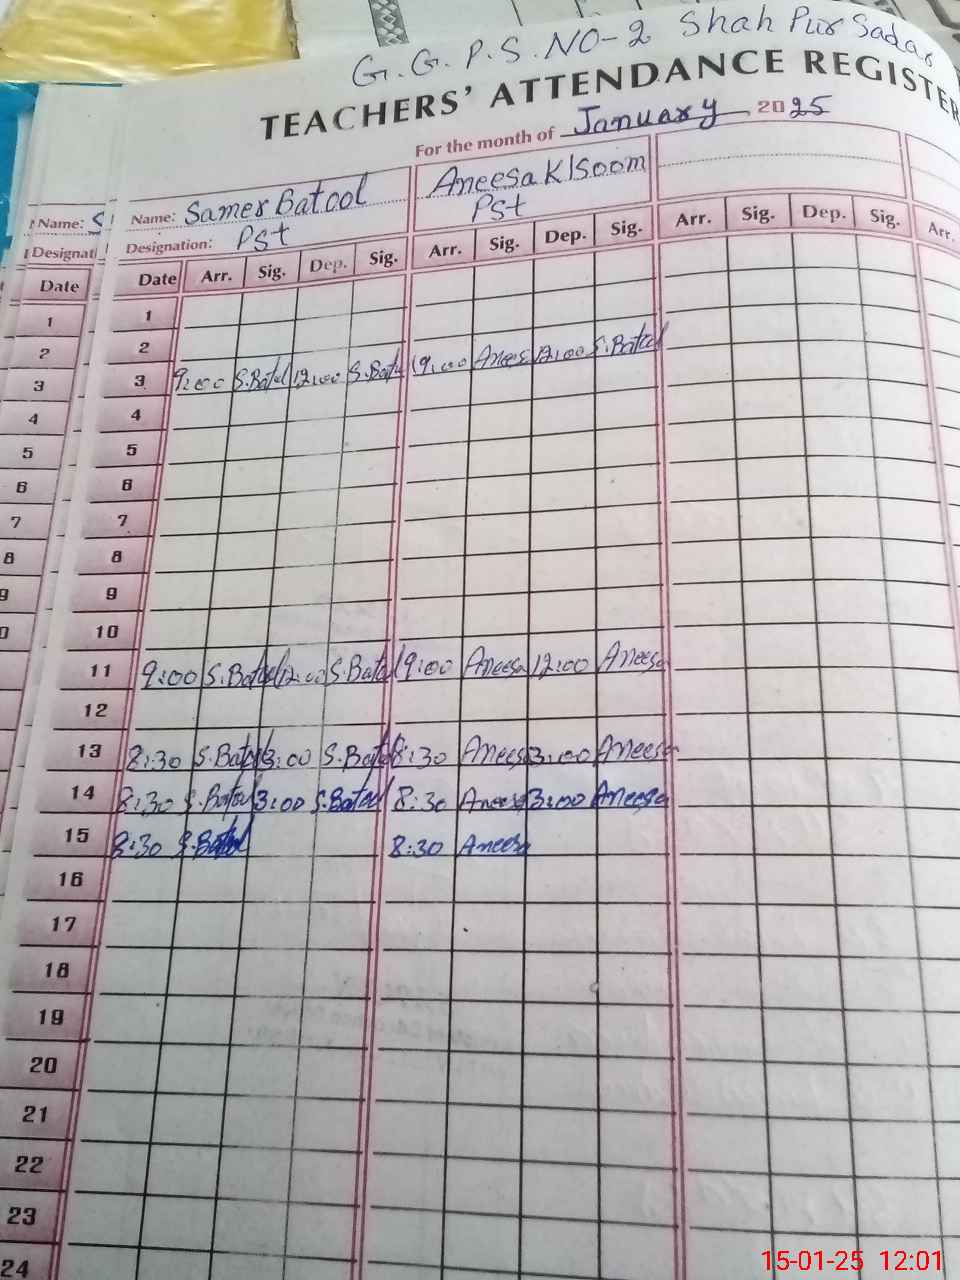 G.G.P.S.NO-2 Shah Pur Sadar
TEACHERS' ATTENDANCE REGISTER
For the month of January 2025
Name: Samer Batool Aneesa Klsoom
Designation: Pst Pst
Date Arr. Sig. Dep. Sig. Arr. Sig. Dep. Sig. Arr. Sig. Dep. Sig. Arr.
1
2
3 9:00 S.Batol 12:00 S.Batol 9:00 Anees 12:00 S.Batool
4
5
6
7
8
9
10
11 9:00 S.Batool 12:00 S.Batol 9:00 Aneesa 12:00 Aneesa
12
13 8:30 S.Batol 3:00 S.Batol 8:30 Aneesa 3:00 Aneesa
14 8:30 S.Batool 3:00 S.Batool 8:30 Aneesa 3:00 Aneesa
15 8:30 S.Batol 8:30 Aneesa
16
17
18
19
20
21
22
23
24
Name: S
Designati
Date
1
2
3
4
5
6
7
8
9
15-01-25 12:01